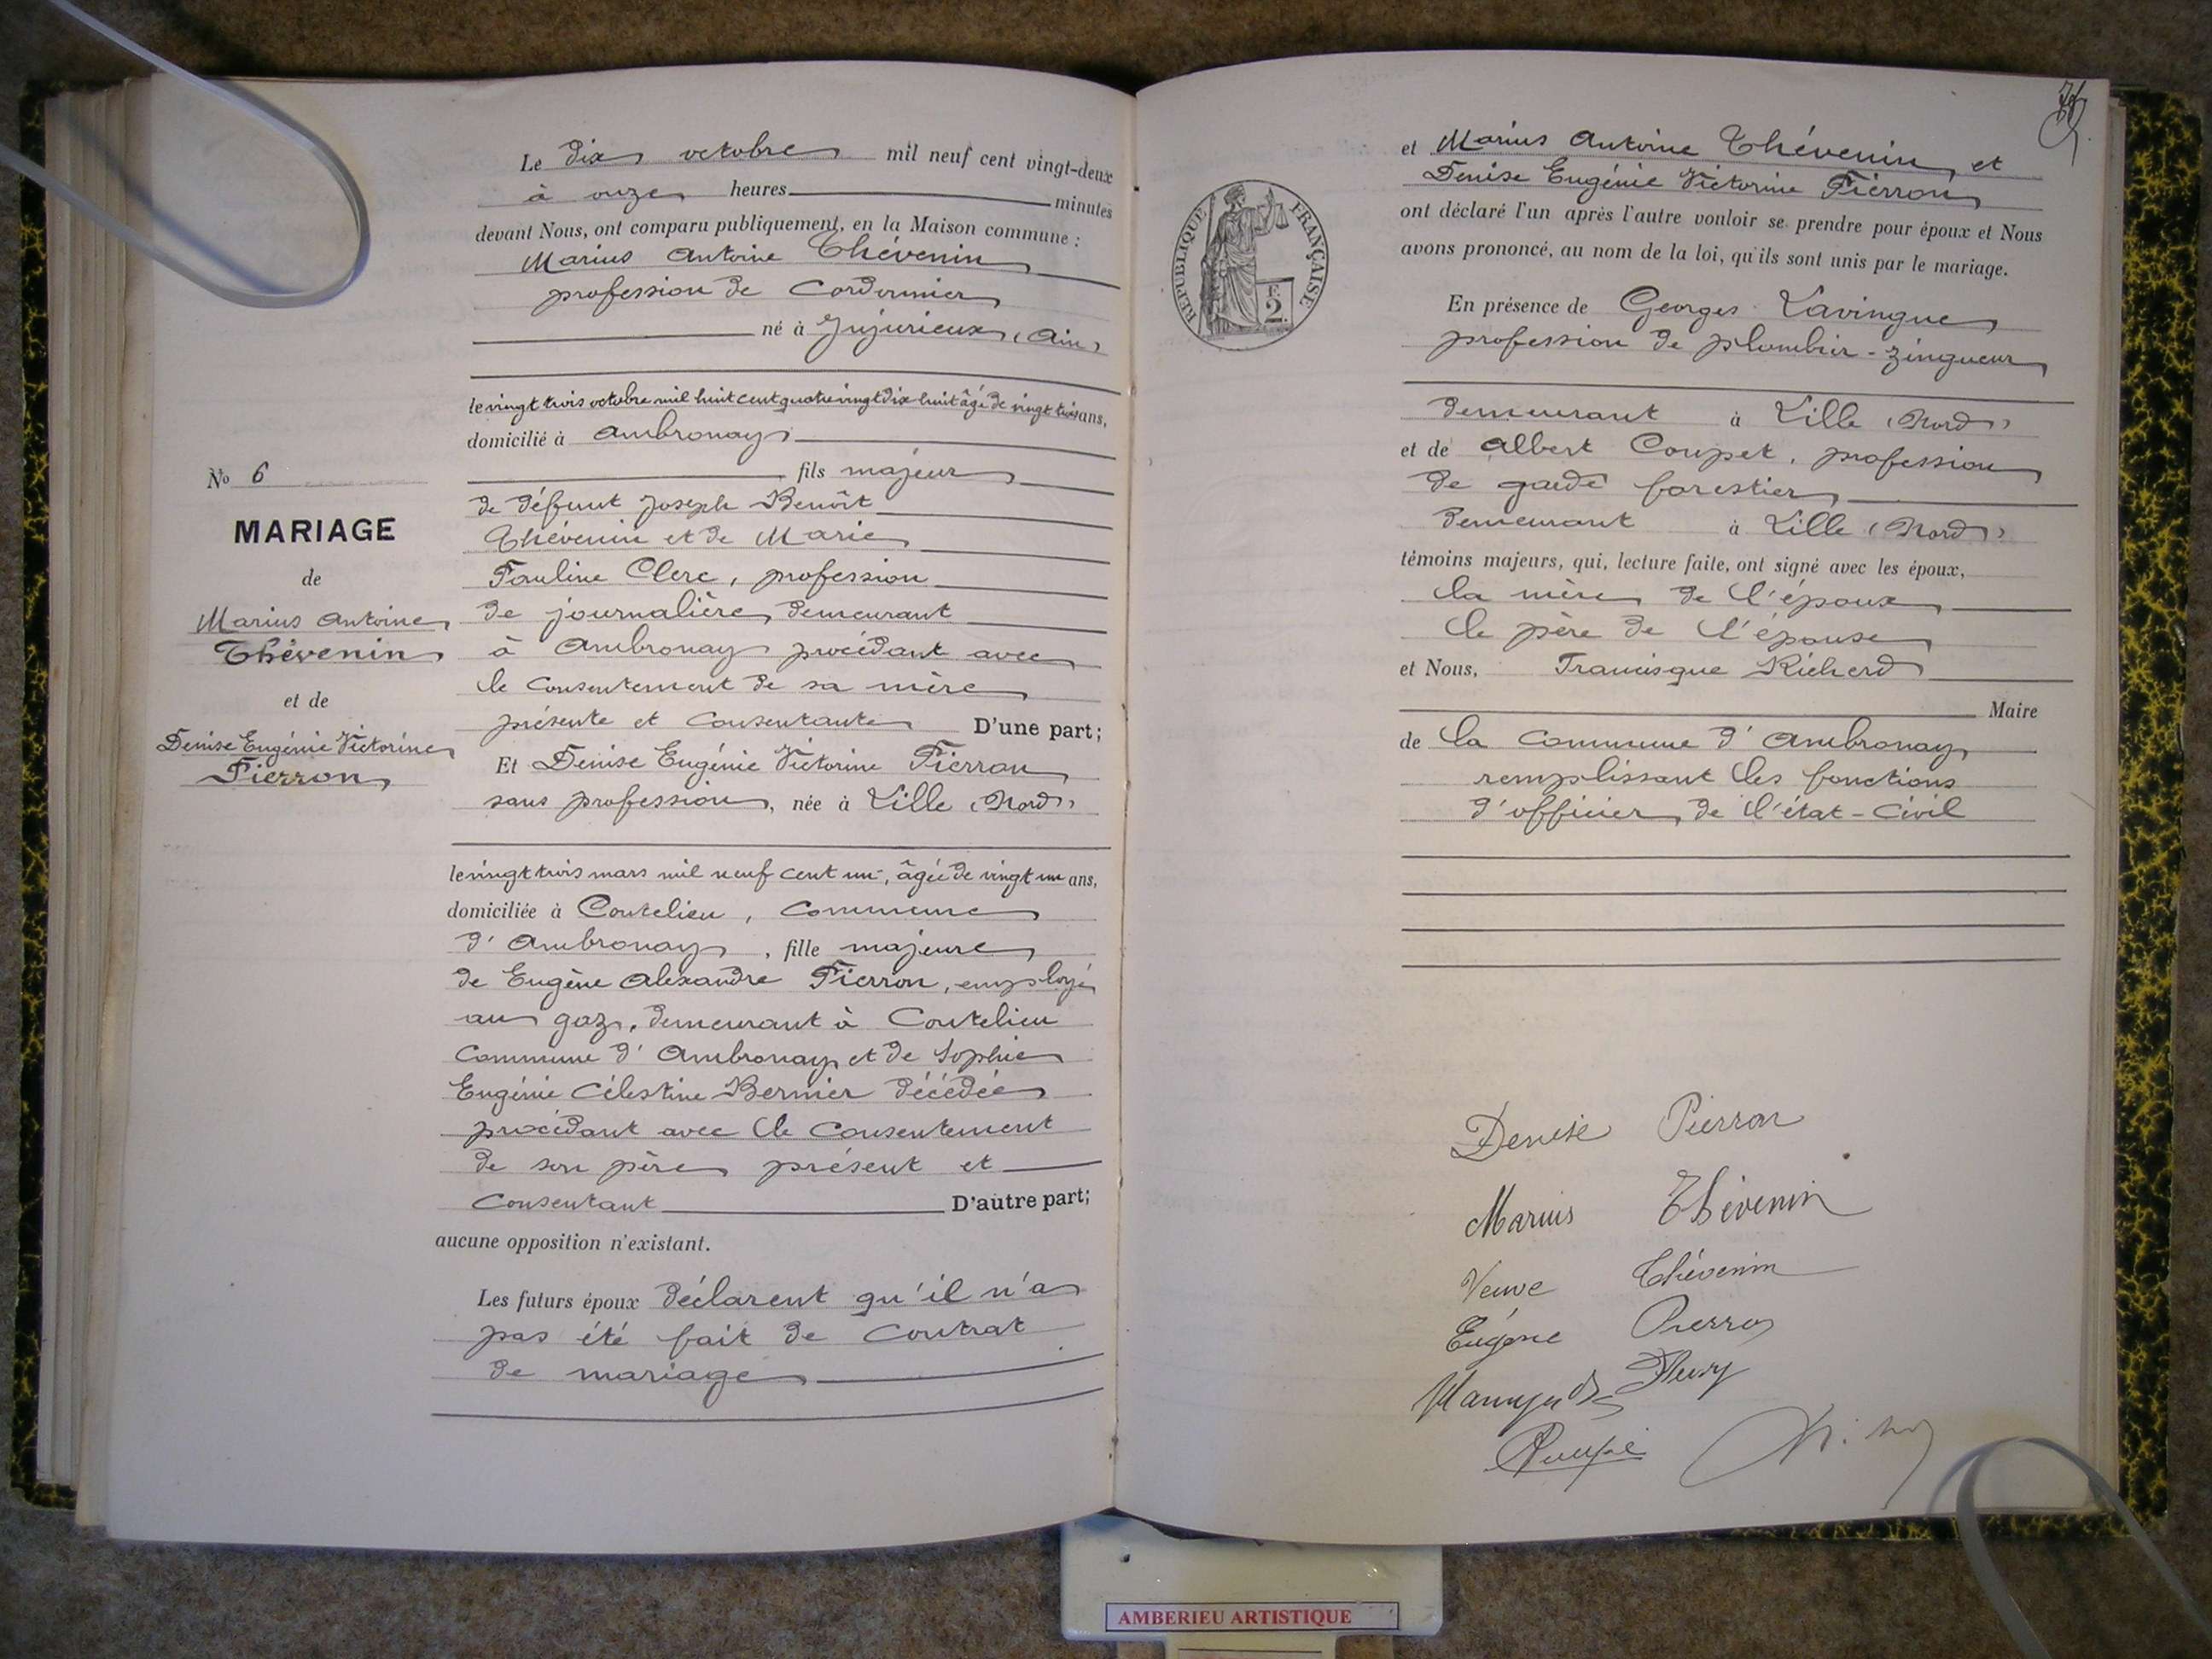 Le dix octobre mil neuf cent vingt-deux
à onze heures minutes
devant Nous, ont comparu publiquement, en la Maison commune :
Marius Antoine Thévenin
profession de Cordonnier
né à Jujurieux (Ain)
le vingt trois octobre mil huit cent quatre vingt dix huit âgé de vingt trois ans,
domicilié à Ambronay
fils majeur
de défunt Joseph Benoît
Thévenin et de Marie
Pauline Clerc, profession
de journalière, demeurant
à Ambronay procédant avec
le consentement de sa mère
présente et consentante D'une part;
Et Denise Eugénie Victorine Pierron
sans profession, née à Lille (Nord)
le vingt trois mars mil neuf cent un, âgée de vingt un ans,
domiciliée à Coutelieu, commune
d'Ambronay, fille majeure
de Eugène Alexandre Pierron, employé
au gaz, demeurant à Coutelieu
Commune d'Ambronay et de Sophie
Eugénie Célestine Bernier décédée
procédant avec le consentement
de son père présent et
consentant D'autre part;
aucune opposition n'existant.
Les futurs époux déclarent qu'il n'a
pas été fait de contrat
de mariage
No 6
MARIAGE
de
Marius Antoine
Thévenin
et de
Denise Eugénie Victorine
Pierron
et Marius Antoine Thévenin, et
Denise Eugénie Victorine Pierron
ont déclaré l'un après l'autre vouloir se prendre pour époux et Nous
avons prononcé, au nom de la loi, qu'ils sont unis par le mariage.
En présence de Georges Lavingue
profession de plombier-zingueur
demeurant à Lille (Nord)
et de Albert Coupet, profession
de garde forestier
demeurant à Lille (Nord)
témoins majeurs, qui, lecture faite, ont signé avec les époux,
la mère de l'époux
le père de l'épouse
et Nous, Francisque Richerd
Maire
de la commune d'Ambronay
remplissant les fonctions
d'officier de l'état-Civil
RÉPUBLIQUE FRANÇAISE
F.
2.
Denise Pierron
Marius Thévenin
Veuve Thévenin
Eugène Pierron
AMBERIEU ARTISTIQUE